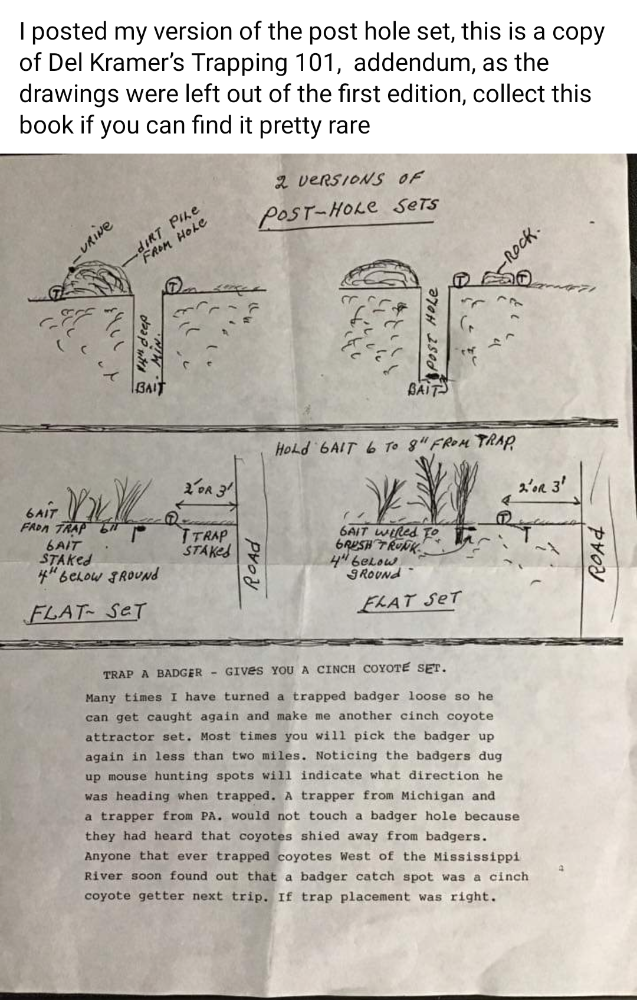 I posted my version of the post hole set, this is a copy
of Del Kramer's Trapping 101,  addendum, as the
drawings were left out of the first edition, collect this
book if you can find it pretty rare
2 VERSIONS OF
POST-HOLE SETS
URINE
DIRT PILE
FROM HOLE
T
T
deep
MIN.
BAIT
ROCK
T
T
POST HOLE
BAIT
HOLD BAIT 6 TO 8" FROM TRAP.
BAIT
FROM TRAP 6"
BAIT
STAKED
4" BELOW GROUND
T
2' OR 3'
TRAP
STAKED
ROAD
FLAT- SET
BAIT WIRED TO
BRUSH TRUNK.
4" BELOW
GROUND
T
2' OR 3'
ROAD
FLAT SET
TRAP A BADGER - GIVES YOU A CINCH COYOTE SET.
Many times I have turned a trapped badger loose so he
can get caught again and make me another cinch coyote
attractor set. Most times you will pick the badger up
again in less than two miles. Noticing the badgers dug
up mouse hunting spots will indicate what direction he
was heading when trapped. A trapper from Michigan and
a trapper from PA. would not touch a badger hole because
they had heard that coyotes shied away from badgers.
Anyone that ever trapped coyotes West of the Mississippi
River soon found out that a badger catch spot was a cinch
coyote getter next trip. If trap placement was right.